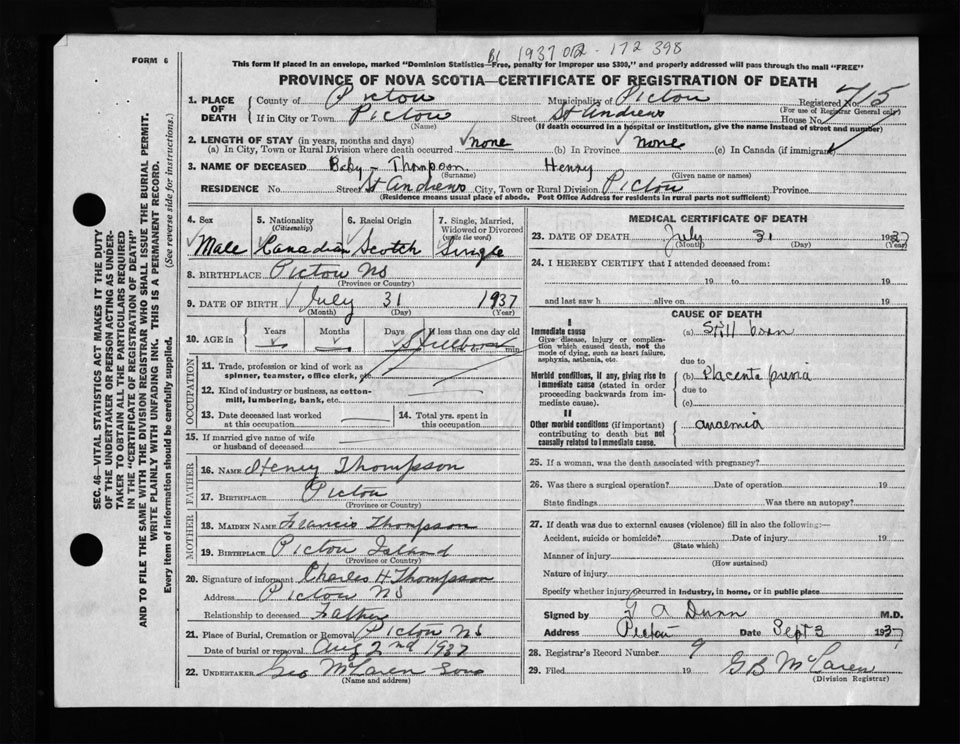 B1 1937 012 - 172 398
FORM 6
This form if placed in an envelope, marked "Dominion Statistics—Free, penalty for improper use $300," and properly addressed will pass through the mail "FREE"
PROVINCE OF NOVA SCOTIA—CERTIFICATE OF REGISTRATION OF DEATH
1. PLACE OF DEATH County of Pictou Municipality of Pictou Registered No. 715
(For use of Registrar General only)
If in City or Town Pictou Street St Andrews House No.
(Name) (If death occurred in a hospital or institution, give the name instead of street and number)
2. LENGTH OF STAY (in years, months and days)
(a) In City, Town or Rural Division where death occurred none (b) In Province None (c) In Canada (if immigrant)
3. NAME OF DECEASED Baby - Thompson Henry
(Surname) (Given name or names)
RESIDENCE No. Street St Andrews City, Town or Rural Division Pictou Province
(Residence means usual place of abode. Post Office Address for residents in rural parts not sufficient)
SEC. 46—VITAL STATISTICS ACT MAKES IT THE DUTY
OF THE UNDERTAKER OR PERSON ACTING AS UNDER-
TAKER TO OBTAIN ALL THE PARTICULARS REQUIRED
IN THE "CERTIFICATE OF REGISTRATION OF DEATH"
AND TO FILE THE SAME WITH THE DIVISION REGISTRAR WHO SHALL ISSUE THE BURIAL PERMIT.
WRITE PLAINLY WITH UNFADING INK. THIS IS A PERMANENT RECORD.
Every item of information should be carefully supplied. (See reverse side for instructions.)
4. Sex 5. Nationality 6. Racial Origin 7. Single, Married,
(Citizenship) Widowed or Divorced
(write the word)
Male Canadian Scotch Single
8. BIRTHPLACE Pictou NS
(Province or Country)
9. DATE OF BIRTH July 31 1937
(Month) (Day) (Year)
10. AGE in Years Months Days If less than one day old
Stillborn
hrs. or min.
OCCUPATION
11. Trade, profession or kind of work as
spinner, teamster, office clerk, etc.
12. Kind of industry or business, as cotton-
mill, lumbering, bank, etc.
13. Date deceased last worked
at this occupation
14. Total yrs. spent in
this occupation
15. If married give name of wife
or husband of deceased
FATHER
16. NAME Henry Thompson
17. BIRTHPLACE Pictou
(Province or Country)
MOTHER
18. MAIDEN NAME Francis Thompson
19. BIRTHPLACE Pictou Island
(Province or Country)
20. Signature of informant Charles H Thompson
Address Pictou NS
Relationship to deceased Father
21. Place of Burial, Cremation or Removal Pictou NS
Date of burial or removal Aug 2nd 1937
22. UNDERTAKER Geo McLaren Sons
(Name and address)
MEDICAL CERTIFICATE OF DEATH
23. DATE OF DEATH July 31 1937
(Month) (Day) (Year)
24. I HEREBY CERTIFY that I attended deceased from:
19 to 19
and last saw h alive on 19
CAUSE OF DEATH
I
Immediate cause (a) Still born
Give disease, injury or complica-
tion which caused death, not the
mode of dying, such as heart failure,
asphyxia, asthenia, etc.
due to
Morbid conditions, if any, giving rise to (b) Placenta previa
immediate cause (stated in order due to
proceeding backwards from im- (c)
mediate cause).
II
Other morbid conditions (if important) anaemia
contributing to death but not
causally related to immediate cause.
25. If a woman, was the death associated with pregnancy?
26. Was there a surgical operation? Date of operation 19
State findings Was there an autopsy?
27. If death was due to external causes (violence) fill in also the following:—
Accident, suicide or homicide? Date of injury 19
(State which)
Manner of injury
(How sustained)
Nature of injury
Specify whether injury occurred in industry, in home, or in public place
Signed by G A Dunn M.D.
Address Pictou Date Sept 3 1937
28. Registrar's Record Number 9
29. Filed 19 G B McLaren
(Division Registrar)